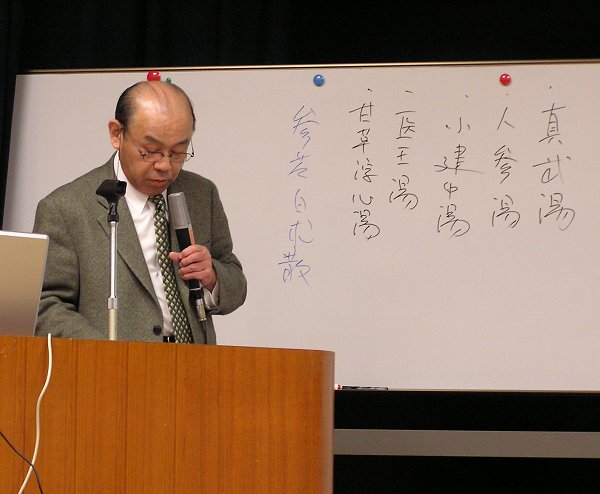 ・真武湯
・人参湯
・小建中湯
・医王湯
・甘草瀉心湯
参苓白朮散